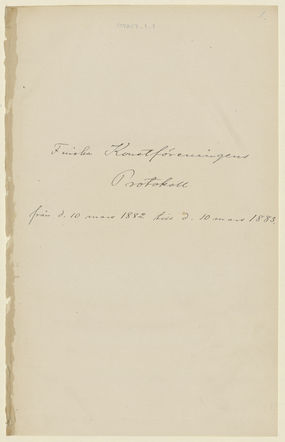 1.
Finska Konstföreningens
Protokoll
från d. 10 mars 1882 till d. 10 mars 1883.